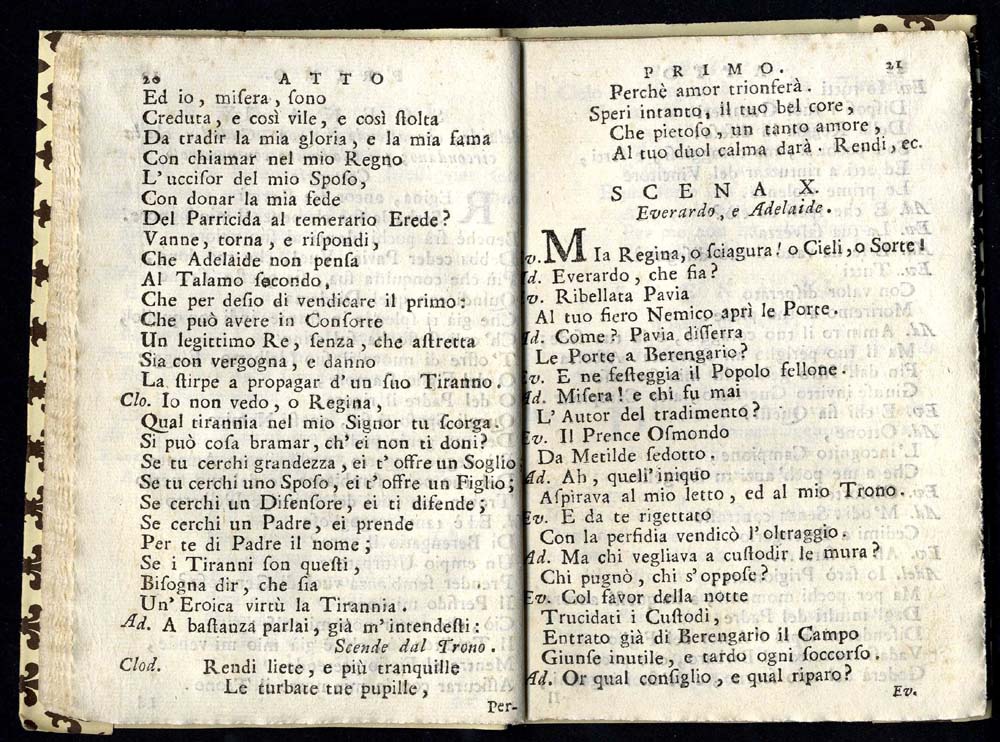 20 ATTO
Ed io, misera, sono
Creduta, e così vile, e così stolta
Da tradir la mia gloria, e la mia fama
Con chiamar nel mio Regno
L'uccisor del mio Sposo,
Con donar la mia fede
Del Parricida al temerario Erede?
Vanne, torna, e rispondi,
Che Adelaide non pensa
Al Talamo secondo,
Che per desio di vendicare il primo:
Che può avere in Consorte
Un legittimo Re, senza, che astretta
Sia con vergogna, e danno
La stirpe a propagar d'un suo Tiranno.
Clo. Io non vedo, o Regina,
Qual tirannia nel mio Signor tu scorga.
Si può cosa bramar, ch'ei non ti doni?
Se tu cerchi grandezza, ei t'offre un Soglio
Se tu cerchi uno Sposo, ei t'offre un Figlio;
Se cerchi un Difensore, ei ti difende;
Se cerchi un Padre, ei prende
Per te di Padre il nome;
Se i Tiranni son questi,
Bisogna dir, che sia
Un'Eroica virtù la Tirannia.
Ad. A bastanza parlai, già m'intendesti:
Scende dal Trono.
Clod. Rendi liete, e più tranquille
Le turbate tue pupille,
Per-
PRIMO. 21
Perchè amor trionferà.
Speri intanto, il tuo bel core,
Che pietoso, un tanto amore,
Al tuo duol calma darà. Rendi, ec.
SCENA X.
Everardo, e Adelaide.
v. MIa Regina, o sciagura! o Cieli, o Sorte!
d. Everardo, che fia?
v. Ribellata Pavia
Al tuo fiero Nemico aprì le Porte.
d. Come? Pavia disserra
Le Porte a Berengario?
v. E ne festeggia il Popolo fellone.
d. Misera! e chi fu mai
L'Autor del tradimento?
Ev. Il Prence Osmondo
Da Metilde sedotto.
Ad. Ah, quell'iniquo
Aspirava al mio letto, ed al mio Trono.
Ev. E da te rigettato
Con la perfidia vendicò l'oltraggio.
Ad. Ma chi vegliava a custodir le mura?
Chi pugnò, chi s'oppose?
Ev. Col favor della notte
Trucidati i Custodi,
Entrato già di Berengario il Campo
Giunse inutile, e tardo ogni soccorso.
Ad. Or qual consiglio, e qual riparo?
Ev.